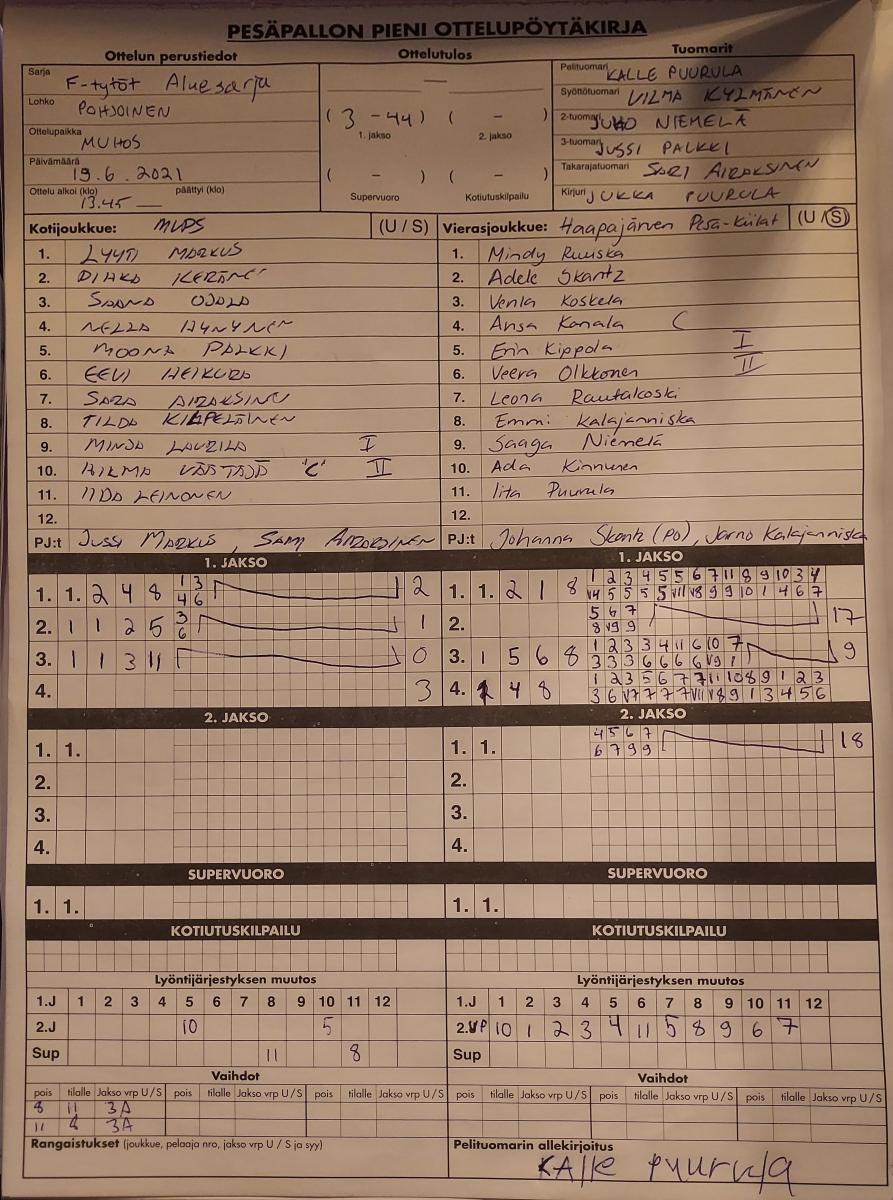 PESÄPALLON PIENI OTTELUPÖYTÄKIRJA
Ottelun perustiedot
Sarja F-tytöt Aluesarja
Lohko POHJOINEN
Ottelupaikka MUHOS
Päivämäärä 19.6.2021
Ottelu alkoi (klo) päättyi (klo)
13.45 —
Ottelutulos
( 3 - 44 ) ( - )
1. jakso 2. jakso
( - ) ( - )
Supervuoro Kotiutuskilpailu
Tuomarit
Pelituomari KALLE PUURULA
Syöttötuomari VILMA KYLMÄNEN
2-tuomari JUHO NIEMELÄ
3-tuomari JUSSI PALKKI
Takarajatuomari SARI AIRAKSINEN
Kirjuri JUKKA PUURULA
Kotijoukkue: MUPS (U / S)
1. LYYTI MARKUS
2. KERÄNEN
3. SAANA OJALA
4. NELLA HYNYNEN
5. MOONA PALKKI
6. EEVI HEIKURA
7. SARA AIRAKSINEN
8. TILDA KILPELÄINEN
9. MINJA LAURILA I
10. HILMA "C" II
11. IIDA LEINONEN
12.
PJ:t JUSSI MARKUS, SAMI AIRAKSINEN
Vierasjoukkue: Haapajärven Pesä-Kiilat (U / S)
1. Mindy Ruuska
2. Adele Skantz
3. Venla Koskela
4. Ansa Kanala C
5. Erin Kippola I
6. Veera Olkkonen II
7. Leona Rautakoski
8. Emmi Kalajanniska
9. Saaga Niemelä
10. Ada Kinnunen
11. Iita Puurula
12.
PJ:t Johanna Skantz (PO), Jarno Kalajanniska
1. JAKSO
1. 1. 2 4 8 1 3 2
4 6
2. 1 1 2 5 3 1
6
3. 1 1 3 11 0
4. 3
1. JAKSO
1. 1. 2 1 8 1 2 3 4 5 5 6 7 11 8 9 10 3 4
V4 5 5 5 5 VII V8 9 9 10 1 4 6 7
2. 5 6 7 17
8 V9 9
3. 1 5 6 8 1 2 3 3 4 11 6 10 7 9
3 3 3 6 6 6 6 V9 1
4. 4 8 1 2 3 5 6 7 7 11 10 8 9 1 2 3
3 6 V7 7 7 7 VII V8 9 1 3 4 5 6
2. JAKSO
1. 1.
2.
3.
4.
2. JAKSO
1. 1. 4 5 6 7 18
6 7 9 9
2.
3.
4.
SUPERVUORO
1. 1.
SUPERVUORO
1. 1.
KOTIUTUSKILPAILU
KOTIUTUSKILPAILU
Lyöntijärjestyksen muutos
1.J 1 2 3 4 5 6 7 8 9 10 11 12
2.J 10 5
Sup 11 8
Lyöntijärjestyksen muutos
1.J 1 2 3 4 5 6 7 8 9 10 11 12
2.VP 10 1 2 3 4 11 5 8 9 6 7
Sup
Vaihdot
pois tilalle Jakso vrp U / S pois tilalle Jakso vrp U / S pois tilalle Jakso vrp U / S
8 11 3A
11 8 3A
Vaihdot
pois tilalle Jakso vrp U / S pois tilalle Jakso vrp U / S pois tilalle Jakso vrp U / S
Rangaistukset (joukkue, pelaaja nro, jakso vrp U / S ja syy)
Pelituomarin allekirjoitus
KAlle puurula